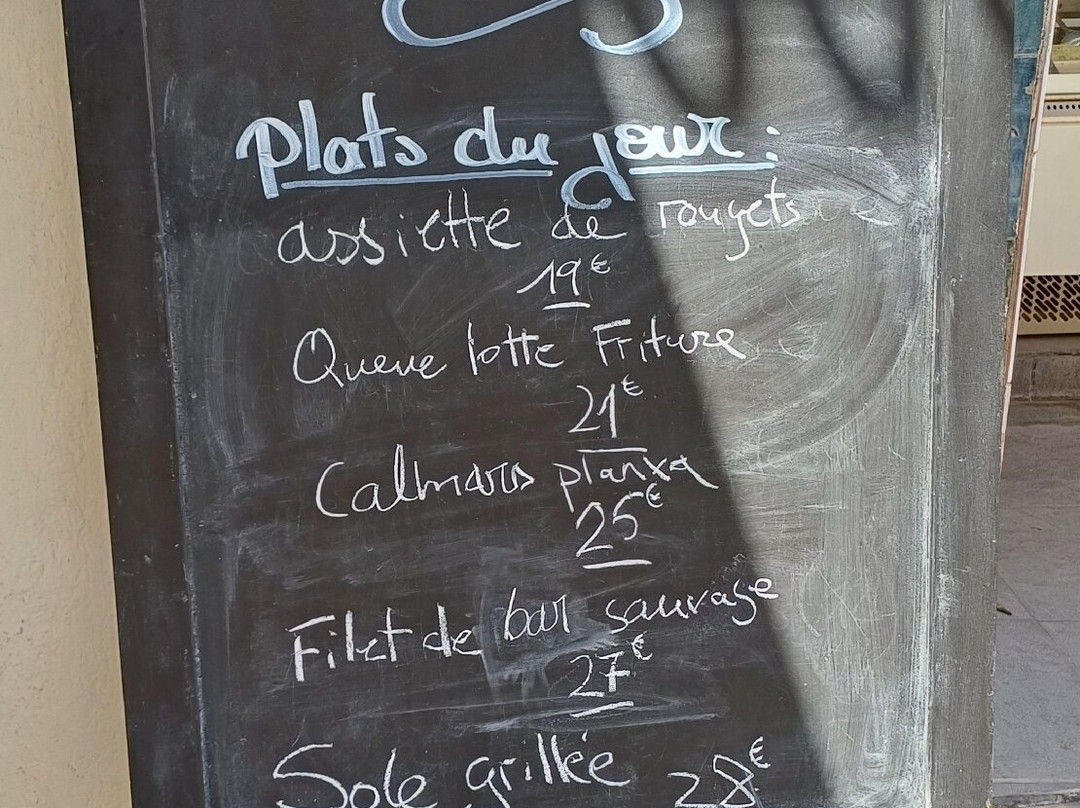 Plats du jour :
assiette de rougets
19€
Queue lotte Friture
21€
Calmars planxa
25€
Filet de bar sauvage
27€
Sole grillée 28€